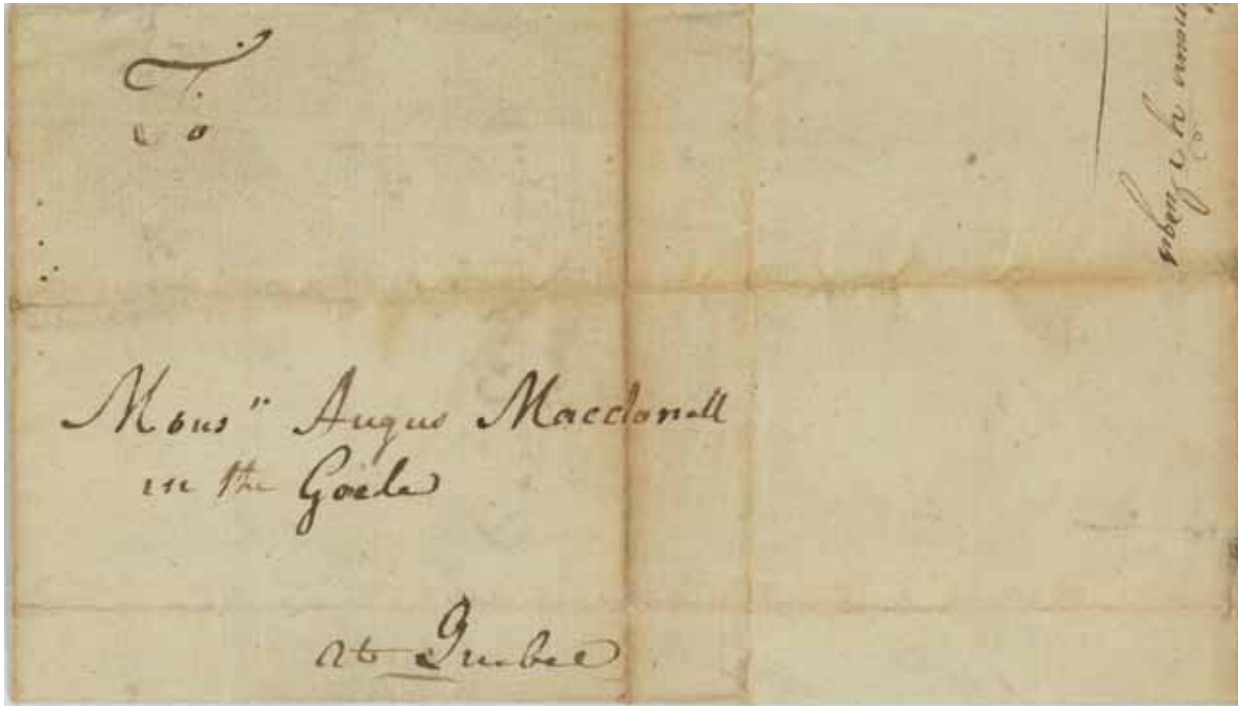 To
Monsr Angus Macdonell
in the Goële
at Quebec